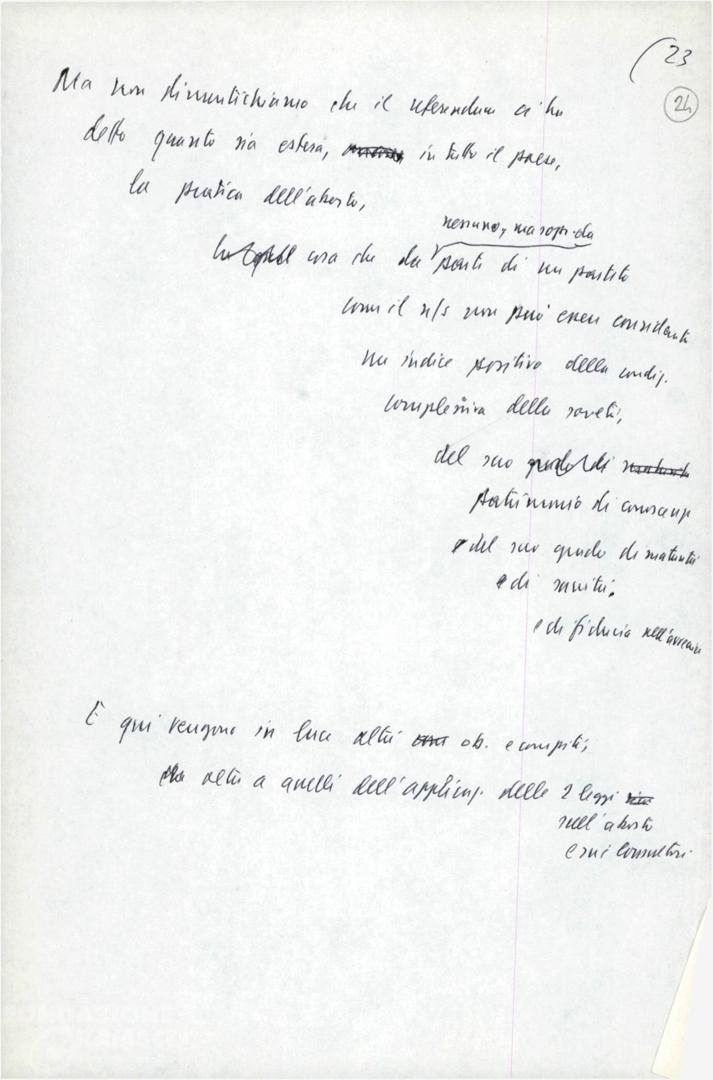 23
24
Ma non dimentichiamo che il referendum ci ha
detto quanto sia estesa, in tutto il paese,
la pratica dell'aborto,
nessuno, ma sopr. da
cosa che da parti di un partito
come il n/s non può essere considerata
un indice positivo della condiz.
complessiva della società,
del suo grado di
patrimonio di conoscenz
e del suo grado di maturità
e di sanità.
e di fiducia nell'avvenire
E qui vengono in luce altri ob. e compiti,
oltre a quelli dell'applicaz. delle 2 leggi
sull'aborto
e sui consultori